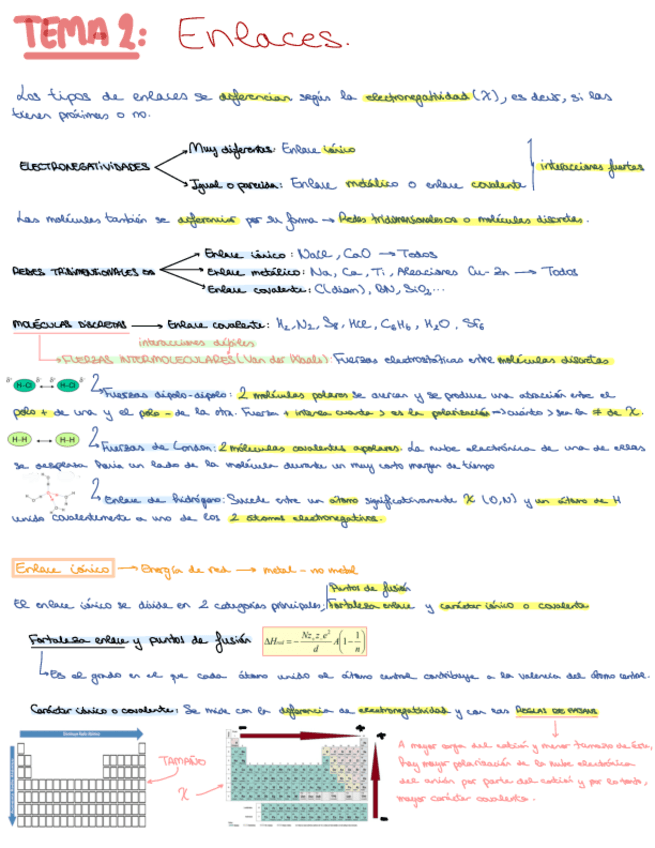 TEMA 2: Enlaces.
Los tipos de enlaces se diferencian según la electronegatividad (X), es decir, si las
tienen próximas o no.
Muy diferentes: Enlace iónico
ELECTRONEGATIVIDADES
interacciones fuertes
Igual o parecida: Enlace metálico o enlace covalente
Las moléculas también se diferencian por su forma → Redes tridimensionales ∞ o moléculas discretas.
Enlace iónico: NaCl, CaO → Todos
REDES TRIDIMENSIONALES ∞
Enlace metálico: Na, Ca, Ti, Aleaciones Cu-Zn → Todos
Enlace covalente: C(diam), BN, SiO2...
MOLÉCULAS DISCRETAS → Enlace covalente: H2, N2, S8, HCl, C6H6, H2O, SF6
interacciones débiles
FUERZAS INTERMOLECULARES (Van der Waals): Fuerzas electrostáticas entre moléculas discretas
H-Cl ↔ H-Cl
Fuerzas dipolo-dipolo: 2 moléculas polares se acercan y se produce una atracción entre el
polo + de una y el polo - de la otra. Fuerza + intensa cuanto > es la polarización → cuánto > sea la ≠ de X.
H-H ↔ H-H
Fuerzas de London: 2 moléculas covalentes apolares. La nube electrónica de una de ellas
se desplaza hacia un lado de la molécula durante un muy corto margen de tiempo
Enlace de hidrógeno: Sucede entre un átomo significativamente X (O,N) y un átomo de H
unido covalentemente a uno de los 2 átomos electronegativos.
Enlace iónico → Energía de red → metal - no metal
Puntos de fusión
El enlace iónico se divide en 2 categorías principales: Fortaleza enlace y carácter iónico o covalente
Fortaleza enlace y puntos de fusión ΔHred = - Nz+z-e²/d A(1 - 1/n)
Es el grado en el que cada átomo unido al átomo central contribuye a la valencia del átomo central.
Carácter iónico o covalente: Se mide con la diferencia de electronegatividad y con las REGLAS DE FAJANS
TAMAÑO
X
A mayor carga del catión y menor tamaño de éste,
hay mayor polarización de la nube electrónica
del anión por parte del catión y por lo tanto,
mayor carácter covalente.